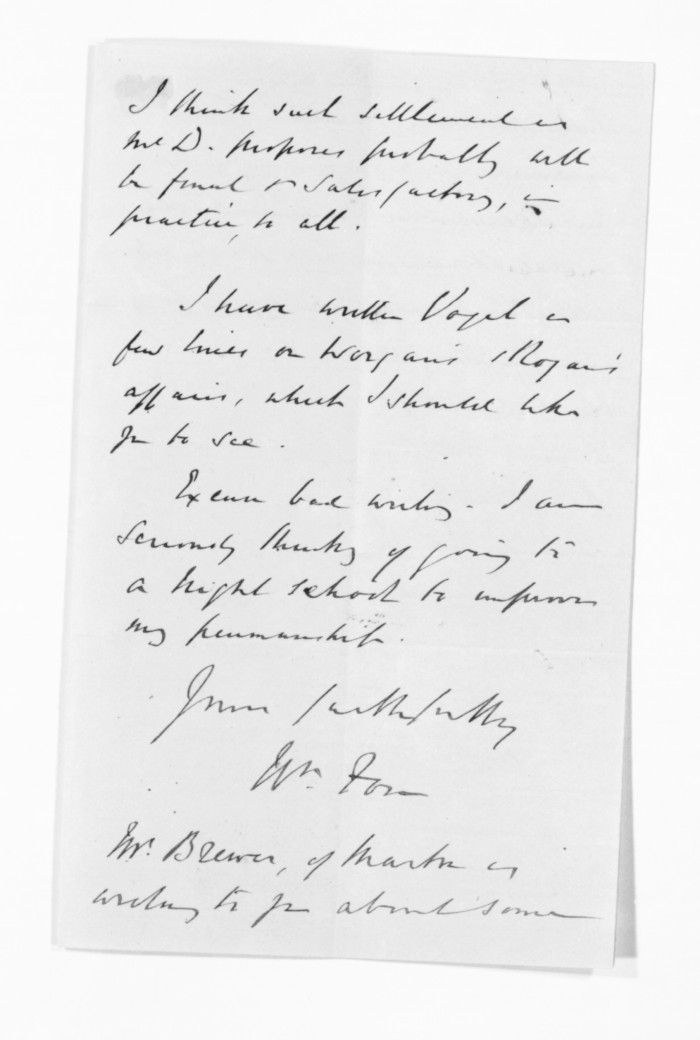 I think such settlement as
Mr D. proposes probably will
be final & satisfactory, in
practice, to all.
I have written Vogel a
few lines on Morgan's & Rogan's
affairs, which I should like
yr to see.
Excuse bad writing. I am
seriously thinking of going to
a night school to improve
my penmanship.
Yours faithfully
Wm. Fox
Mr. Brewer, of Marton is
writing to yr about some